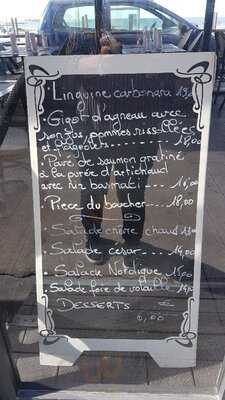 . Linguine carbonara 13,
. Gigot d'agneau avec
son jus, pommes rissolées
et flageolets ........ 18,00
. Pavé de saumon gratiné
à la purée d'artichaud
avec riz basmati --- 16,00
. Piece du boucher --- 18,00
. Salade chèvre chaud 13,00
. Salade césar --- 14,00
. Salade Nordique 15,00
. Salade foie de volaille
DESSERTS €
6,00